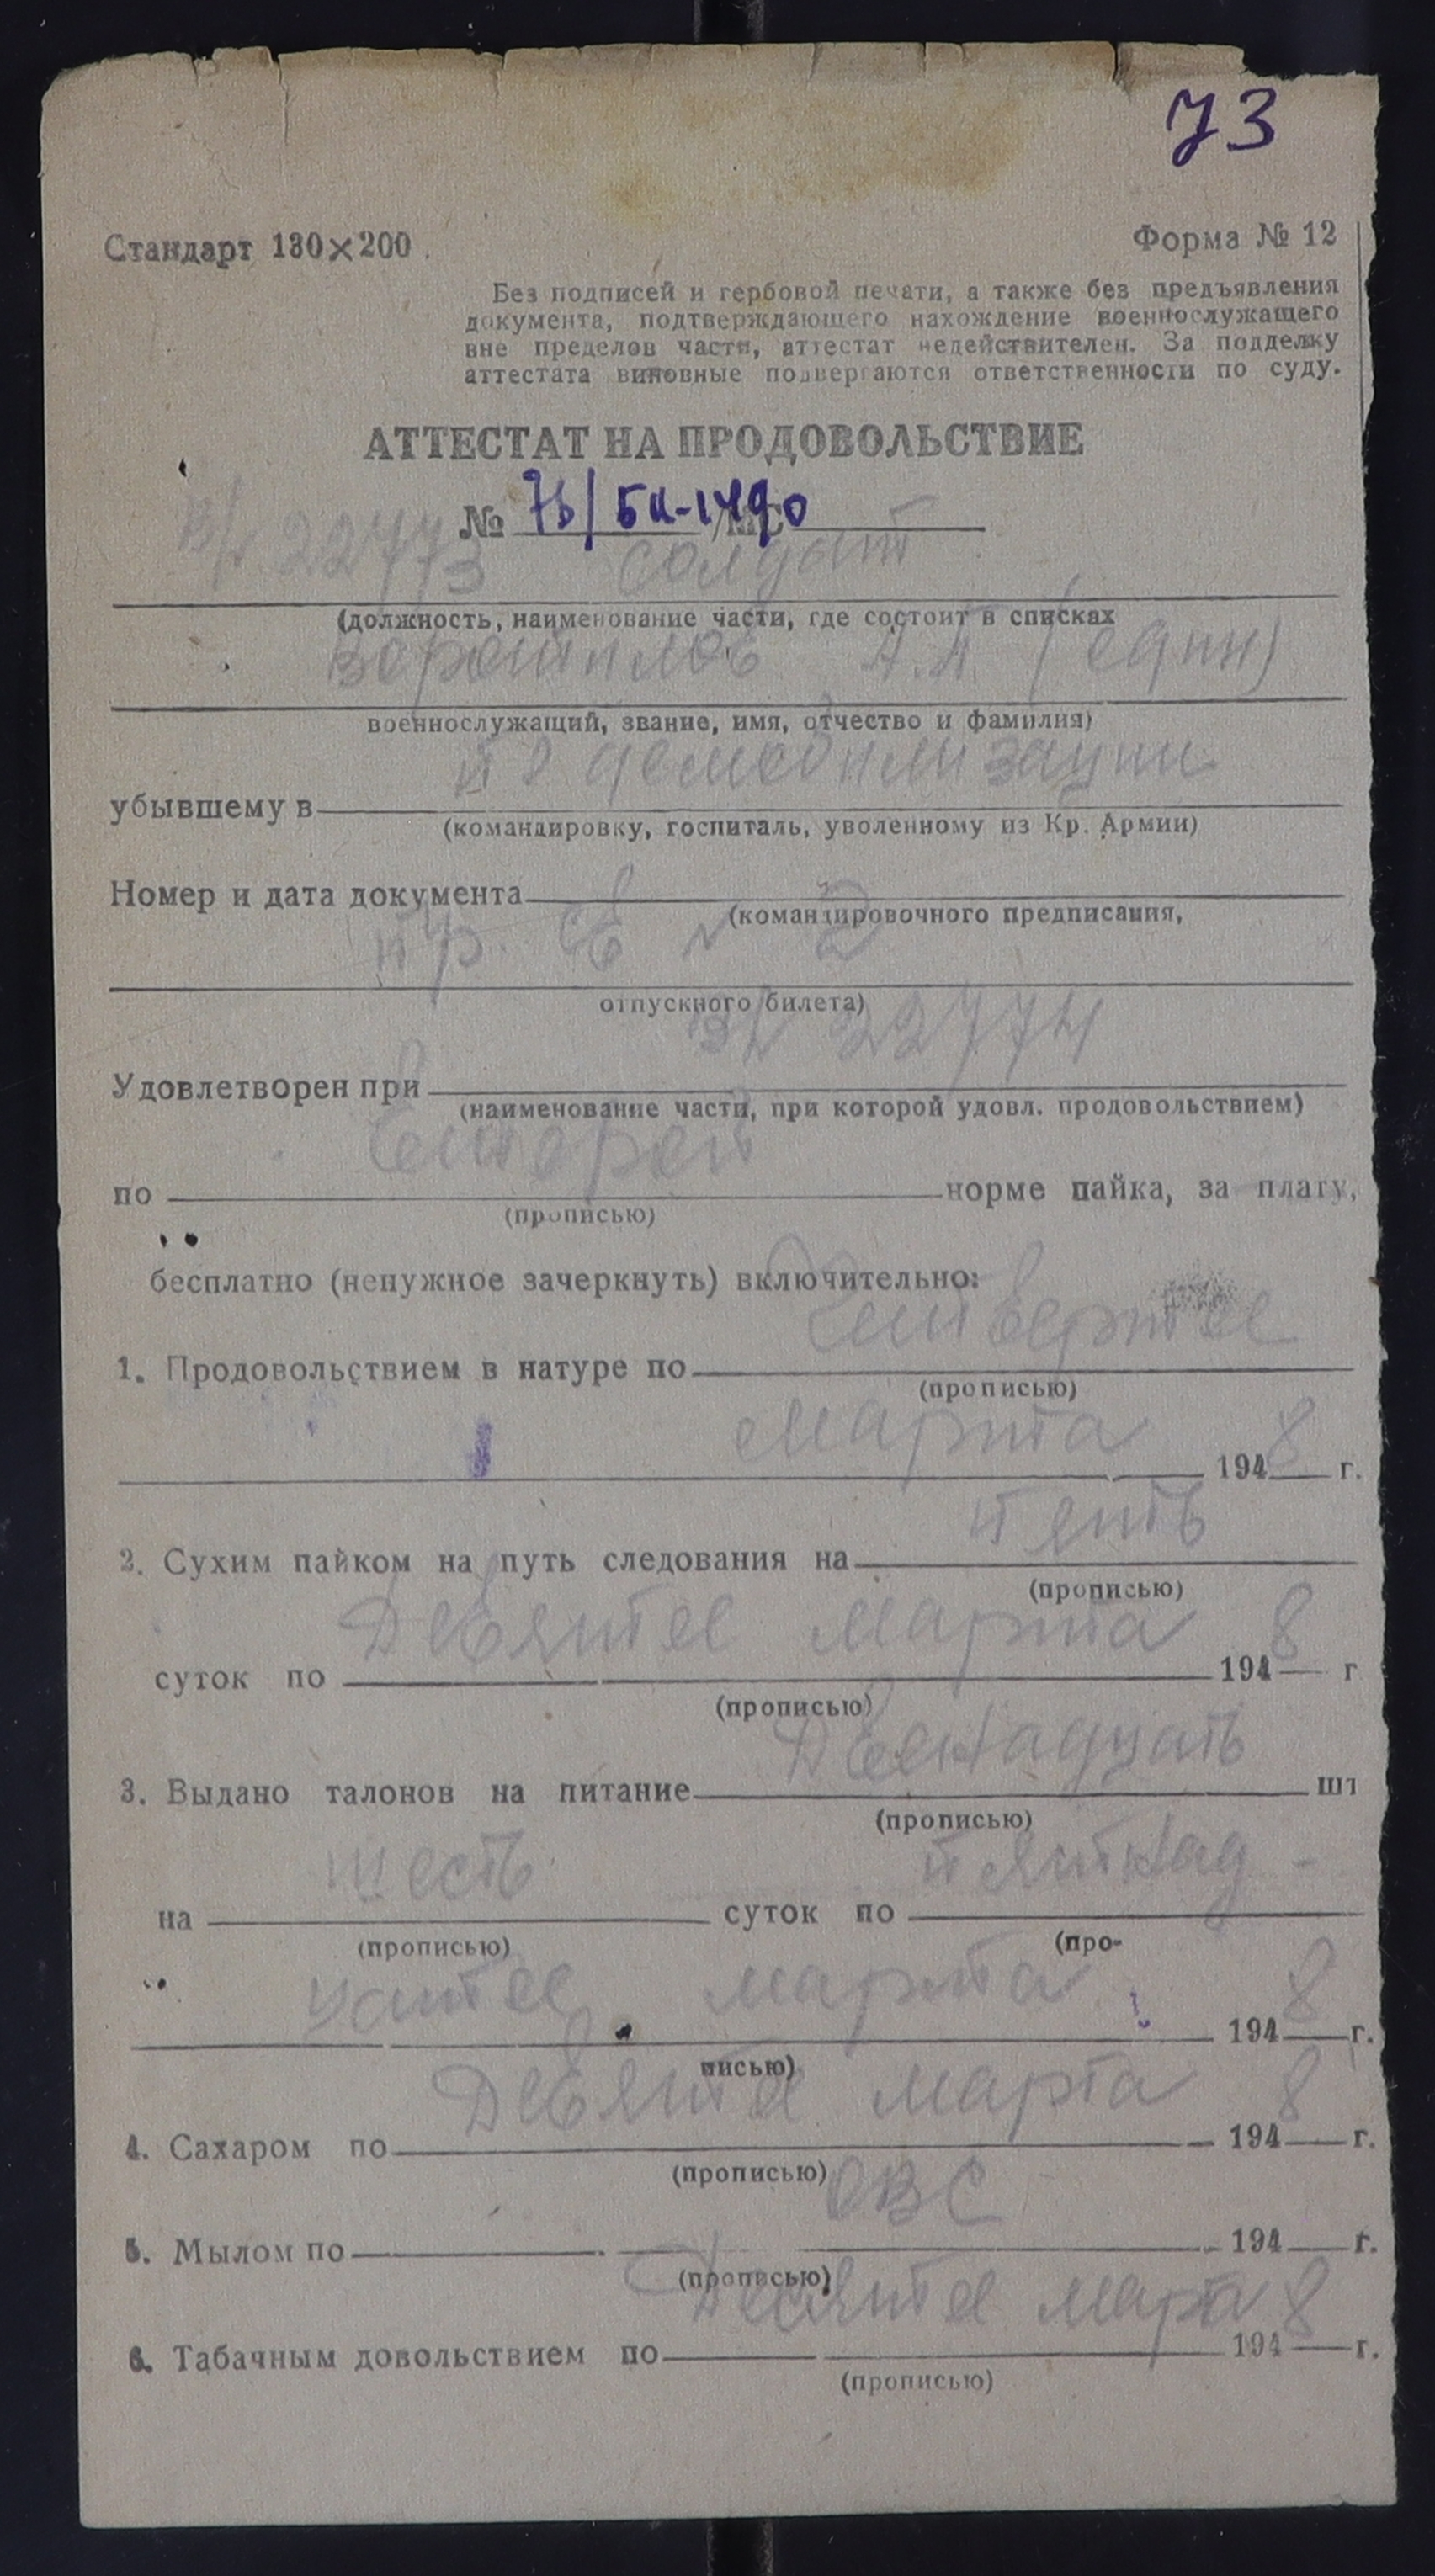 73
Стандарт 130×200
Форма № 12
Без подписей и гербовой печати, а также без предъявления
документа, подтверждающего нахождение военнослужащего
вне пределов части, аттестат недействителен. За подделку
аттестата виновные подвергаются ответственности по суду.
АТТЕСТАТ НА ПРОДОВОЛЬСТВИЕ
№
22773 солдат
(должность, наименование части, где состоит в списках
А.П. (один)
военнослужащий, звание, имя, отчество и фамилия)
по демобилизации
убывшему в
(командировку, госпиталь, уволенному из Кр. Армии)
Номер и дата документа
(командировочного предписания,
пр. св № 2
отпускного билета)
22774
Удовлетворен при
(наименование части, при которой удовл. продовольствием)
по второй норме пайка, за плату,
(прописью)
бесплатно (ненужное зачеркнуть) включительно:
1. Продовольствием в натуре по Четвертое
(прописью)
марта 1948 г.
2. Сухим пайком на путь следования на пять
(прописью)
суток по Девятое марта 1948 г
(прописью)
3. Выдано талонов на питание Двенадцать шт
(прописью)
на шесть суток по пятнад-
(прописью) (про-
цатое марта 1948 г.
писью)
4. Сахаром по Девятое марта 1948 г.
(прописью)
5. Мылом по ОВС 194 г.
(прописью)
6. Табачным довольствием по Девятое марта 1948 г.
(прописью)